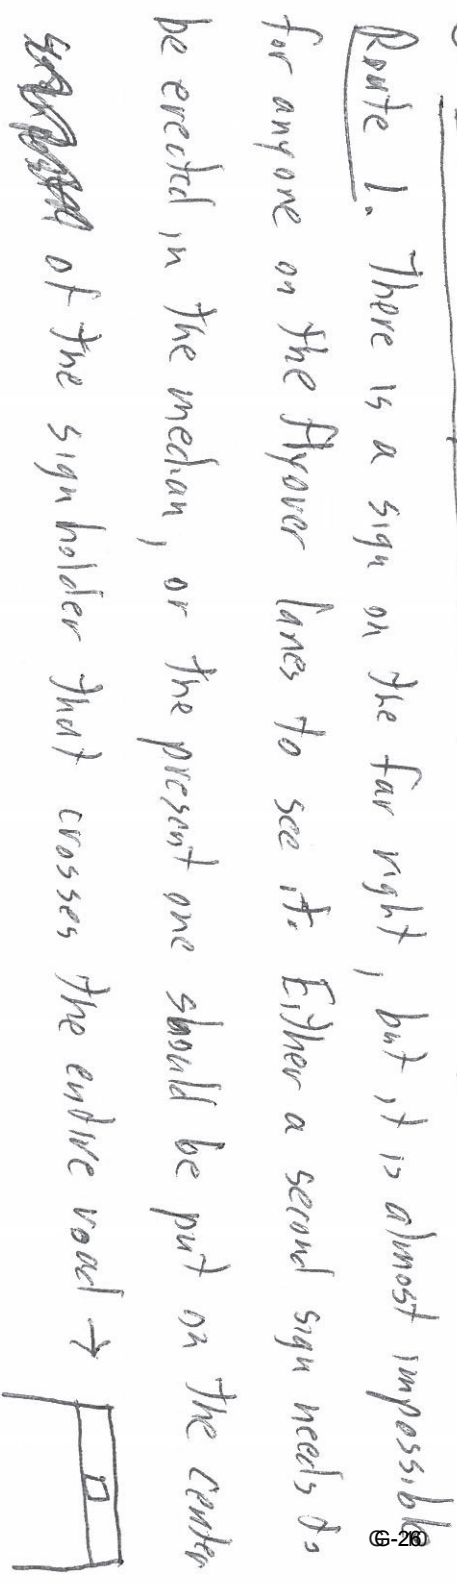 Route 1. There is a sign on the far right, but it is almost impossible
for anyone on the flyover lanes to see it. Either a second sign needs to
be erected in the median, or the present one should be put on the center
of the sign holder that crosses the entire road →